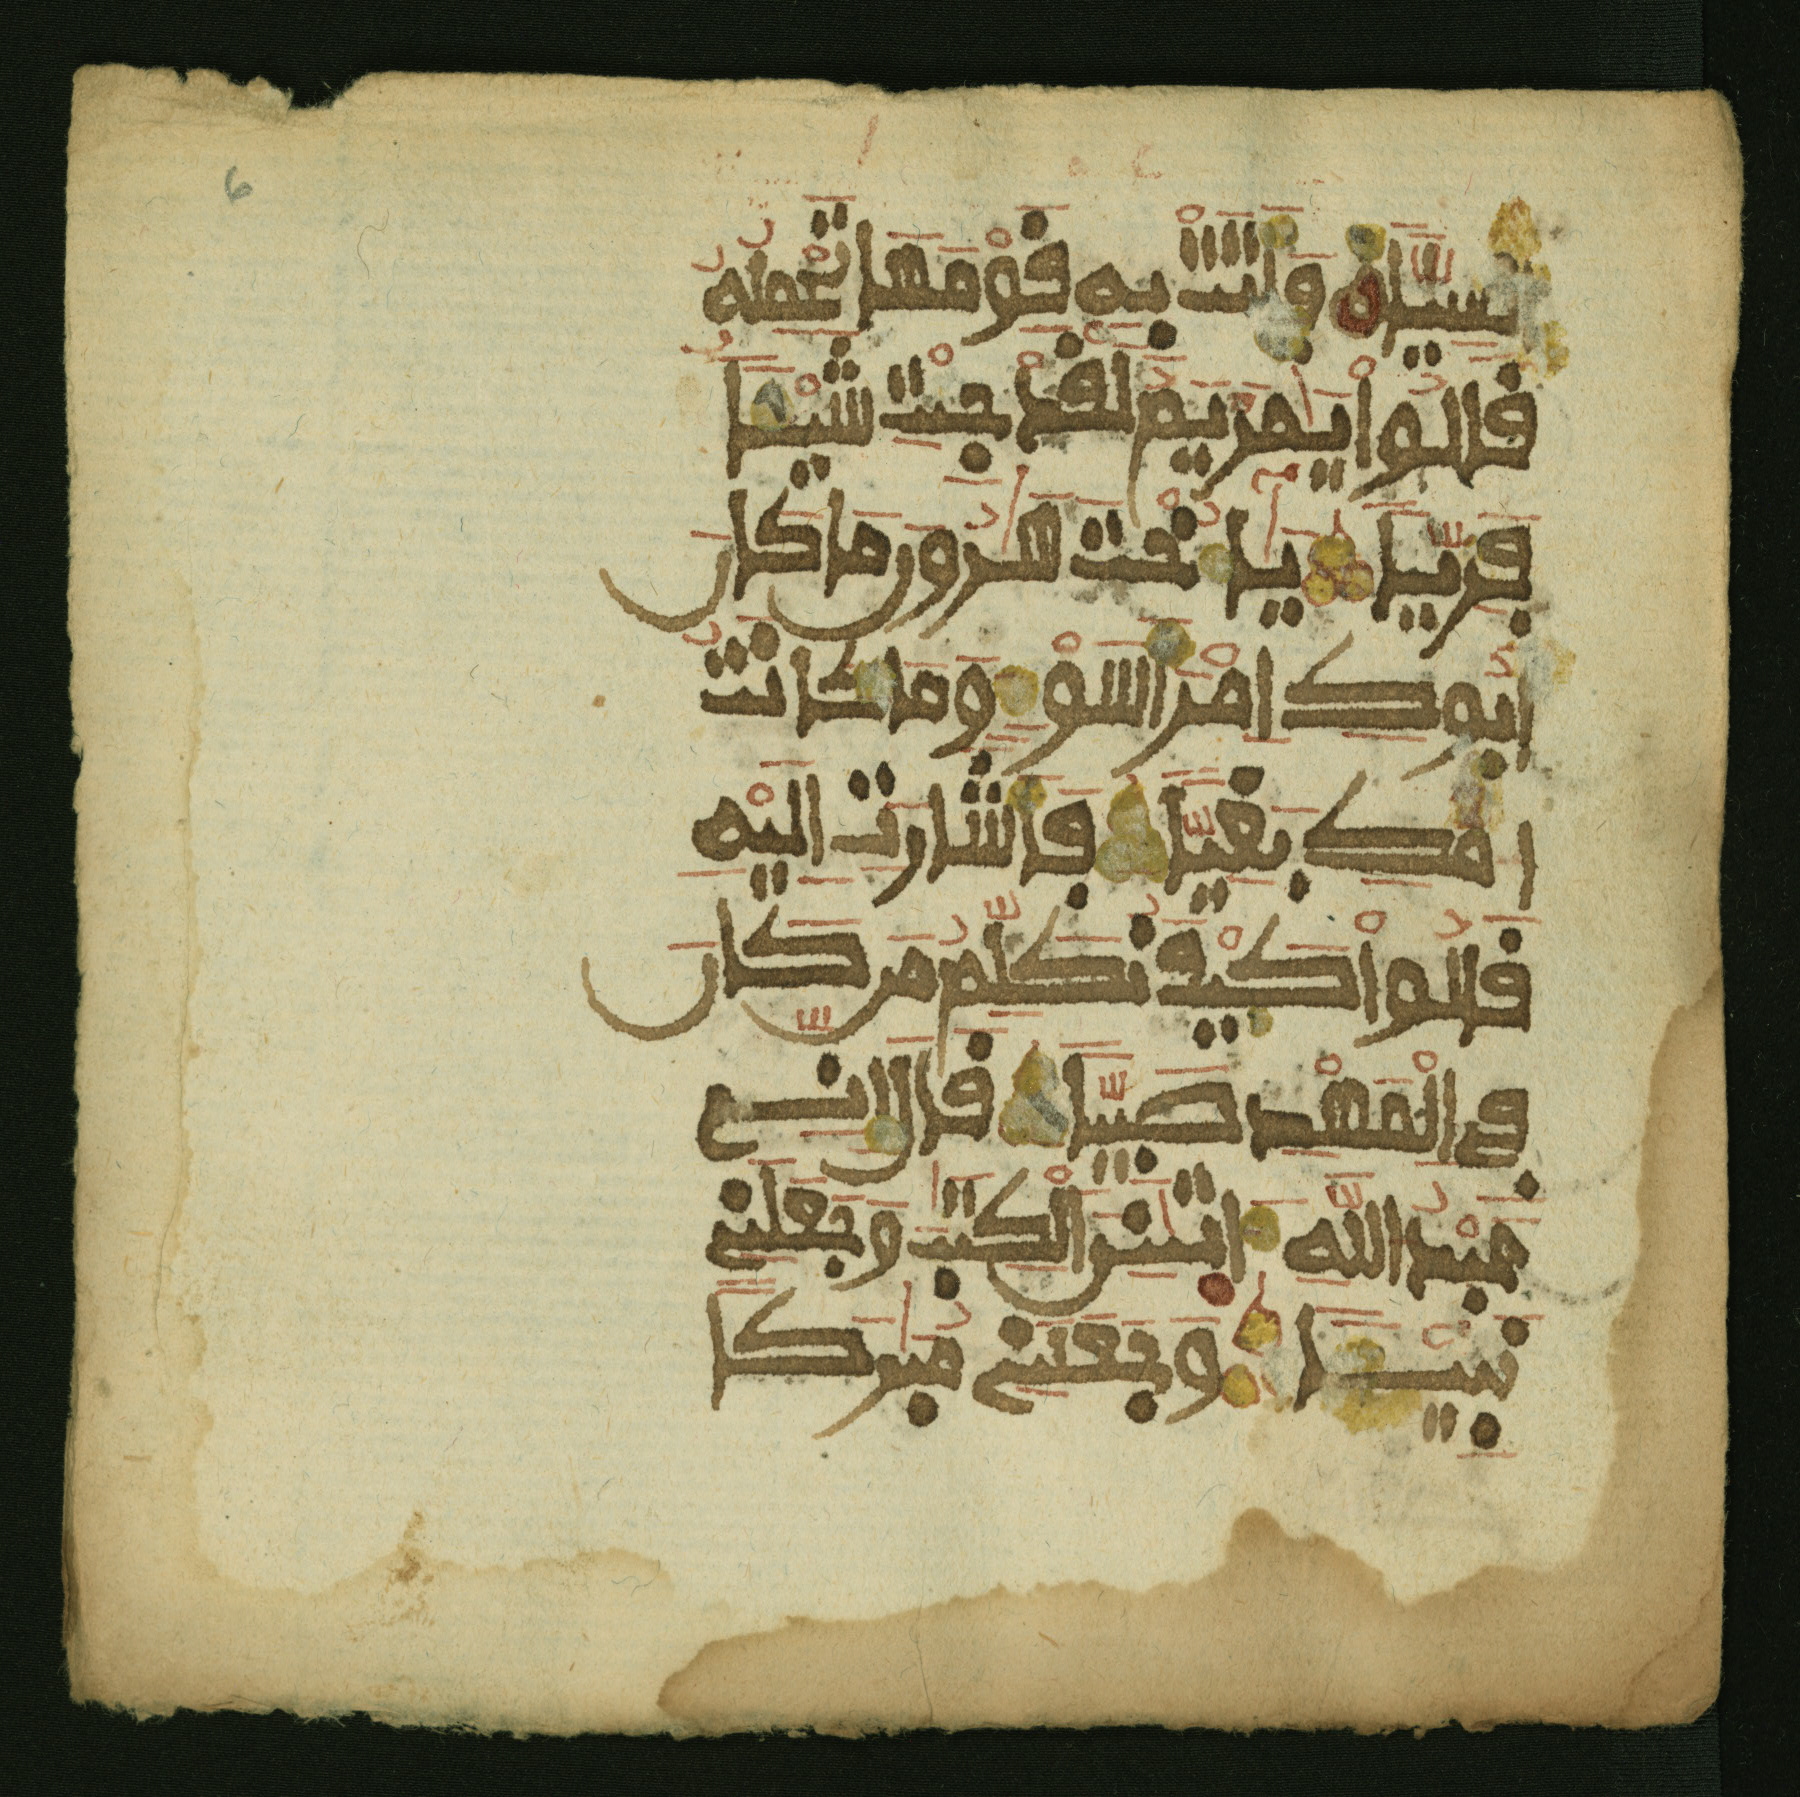 6
انسيا فاتت به قومها تحمله
قالوا يمريم لقد جيت شيا
فريا ياخت هرون ما كان
ابوك امرا سو وما كانت
امك بغيا فاشارت اليه
قالوا كيف نكلم من كان
في المهد صبيا قال اني
عبد الله اتني الكتب وجعلني
نبيا وجعلني مبركا